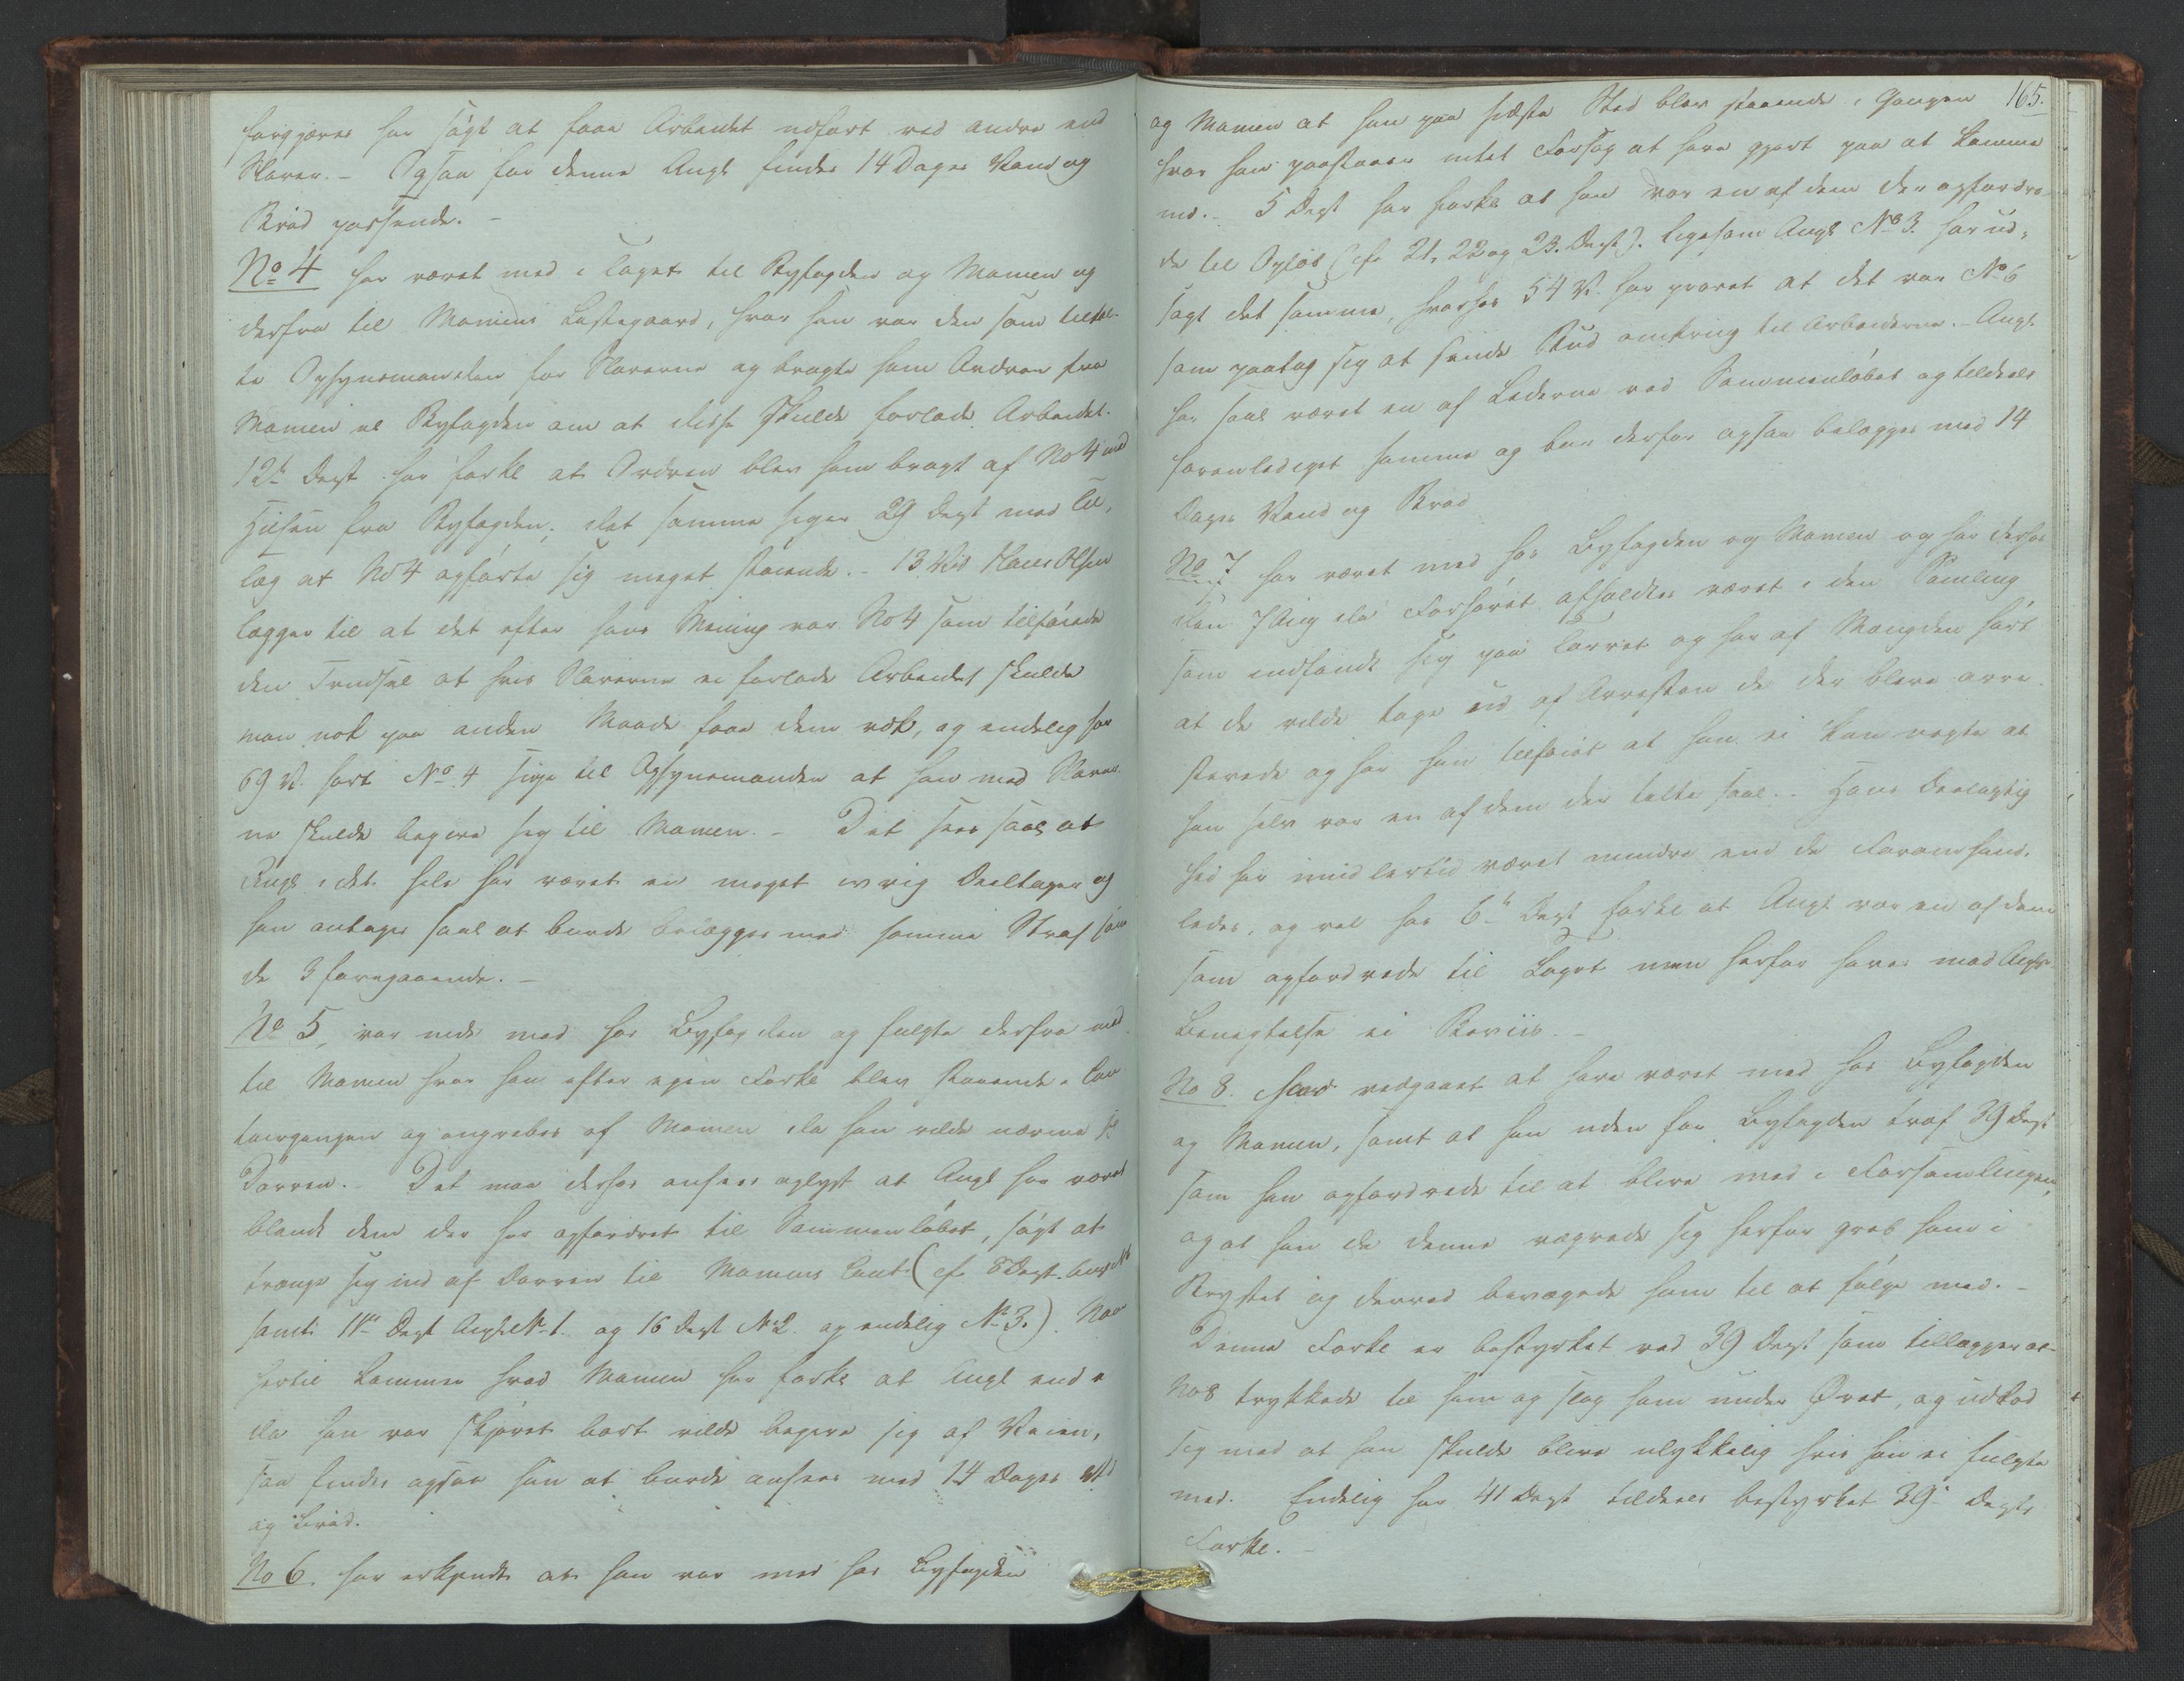 forgjæves har søgt at faae Arbeidet udført ved andre end
Slaver. – Ogsaa for denne Angl findes 14 Dages Vand og
Brød passende. –
No 4 har været med i Toget til Byfogden og Mamen og
derfra til Mamens Lastegaard, hvor han var den som tiltal-
te Opsynsmanden for Slaverne og bragte ham Ordren fra
Mamen el Byfogden om at disse skulde forlade Arbeidet.
12te Dept har forkl at Ordren blev ham bragt af No 4 med
Hilsen fra Byfogden; det samme siger 29 Dept med Til,
læg at No 4 opførte sig meget støiende. – 13 Vid Hans Olsen
lægger til at det efter hans Mening var No 4 som tilføiede
den Trudsel at hvis Slaverne ei forlode Arbeidet skulde
man nok paa anden Maade faae dem væk, og endelig har
69 V. hørt No 4 sige til Opsynsmanden at han med Slaver-
ne skulde begive sig til Mamen. – Det sees saal at
Angl i det hele har været en meget ivrig Deeltager og
han antages saal at burde belægges med samme Straf som
de 3 foregaaende. –
No 5, var med hos Byfogden og fulgte derfra med
til Mamen hvor han efter egen Forkl blev staaende i Con
toirgangen og angrebes af Mamen da han vilde nærme sig
Dørren. – Det maa derhos ansees oplyst at Angl har været
blandt dem der har opfordret til Sammenløbet, søgt at
trænge sig ind af Dørren til Mamens Cont. (cf. 8 Dept.
samt 11te Dept Angl. No 1. og 16 Dept No 2 og endelig No 3.). Naar
hertil kommer hvad Mamen har forkl at Angl end ei
da han var skjøvet bort vilde begive sig af Veien,
saa findes ogsaa han at burde ansees med 14 Dages Vd
og Brød.
No 6. har erkjendt at han var med hos Byfogden
165.
og Mamen at han paa sidste Sted blev staaende i Gangen
hvor han paastaaer intet Forsøg at have gjort paa at komme
ind. – 5 Dept har forkl at han var en af dem der opfordre-
de til Opløb (cfr 21, 22 og 23. Dept). ligesom Angl No 3. har ud,
sagt det samme, hvorhos 54 V. har prøvet at det var No 6
som paatog sig at sende Bud omkring til Arbeiderne. – Angl.
har saal været en af Lederne ved Sammenløbet og tildeels
foranlediget samme og bør derfor ogsaa belægges med 14
Dages Vand og Brød
No 7 har været med hos Byfogden og Mamen og har derhos
den 7 Aug da Forhøret afholdtes været i den Samling
som indfandt sig paa Torvet og har af Mængden hørt
at de vilde tage ud af Arresten de der bleve arre-
sterede og har han tilføiet at han ei kan nægte at
han selv var en af dem der talte saal. – Hans Deelagtig
hed har imidlertid været mindre end de Foranhand.
ledes, og vel har 6te Dept forkl at Angl var en af dem
som opfordrede til Toget men herfor haves mod Angls
Benægtelse ei Beviis. –
No 8. har vedgaaet at have været med hos Byfogden
og Mamen, samt at han uden for Byfogden traf 39 Dept
som han opfordrede til at blive med i Forsamlingen,
og at han da denne vægrede sig herfor greb ham i
Brystet og derved bevægede ham til at følge med. –
Denne Forkl er bestyrket ved 39 Dept som tillægger at
No 8 trykkede til ham og slog ham under Øret, og udlod
sig med at han skulde blive ulykkelig hvis han ei fulgte
med. Endelig har 41 Dept tildeels bestyrket 39te Depts
Forkl. –